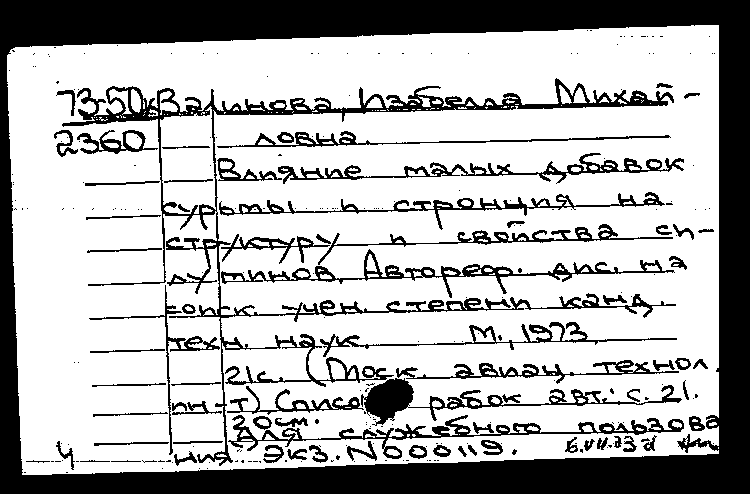 73-50к Валинова, Изабелла Михай-
2360 ловна.
Влияние малых добавок
сурьмы и стронция на
структуру и свойства си-
луминов. Автореф. дис. на
соиск. учен. степени канд.
техн. наук. М., 1973
21с. (Моск. авиац. технол.
ин-т) Списо рабок авт.: с. 21.
20см.
Для служебного пользова
4 ния. Экз. N000119.